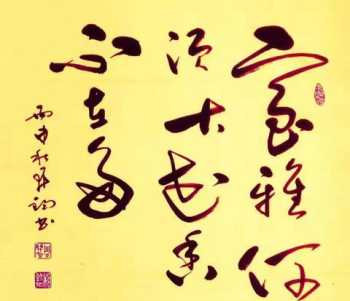 室雅何
须大花香
不在多
丙申秋书